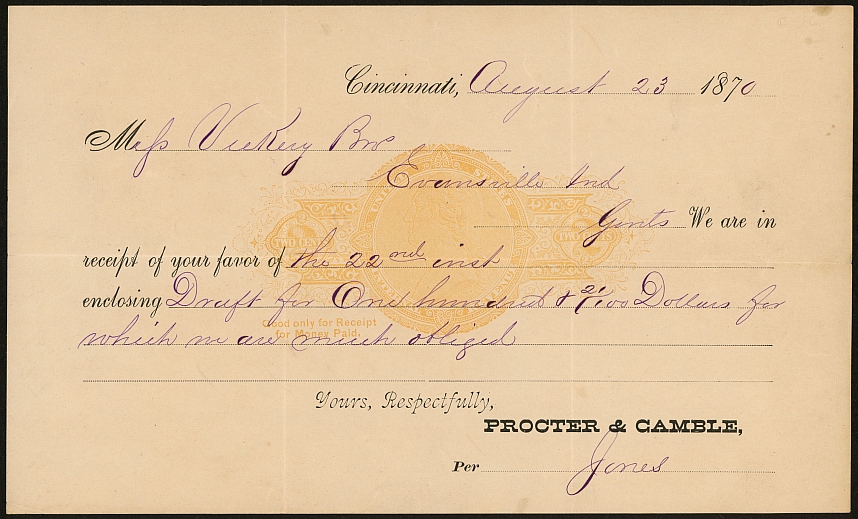 Cincinnati, August 23 1870
Mess Vickery Bros
Evansville Ind
Gents We are in
receipt of your favor of the 22nd inst
enclosing Draft for One hundred & 21/100 Dollars for
which we are much obliged
Good only for Receipt
for Money Paid.
TWO CENTS
TWO CENTS
UNITED STATES
Yours, Respectfully,
PROCTER & GAMBLE,
Per Jones